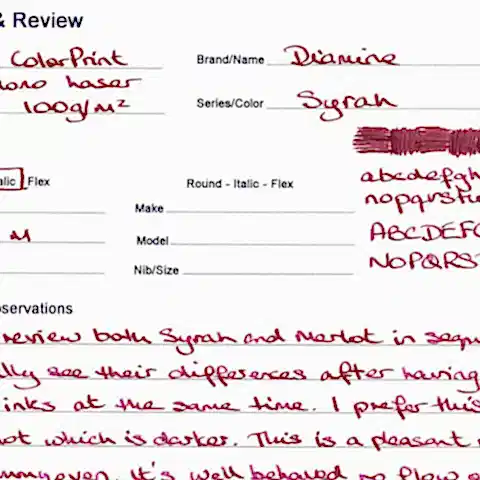 & Review
ColorPrint Brand/Name Diamine
Mono Laser
100g/m² Series/Color Syrah
Italic Flex Round - Italic - Flex abcdefgh
nopqrstu
Make
M Model ABCDEFG
Nib/Size NOPQRS
Observations
review both Syrah and Merlot in sequ
ally see their differences after having
inks at the same time. I prefer this
lot which is darker. This is a pleasant
It's well behaved no flow